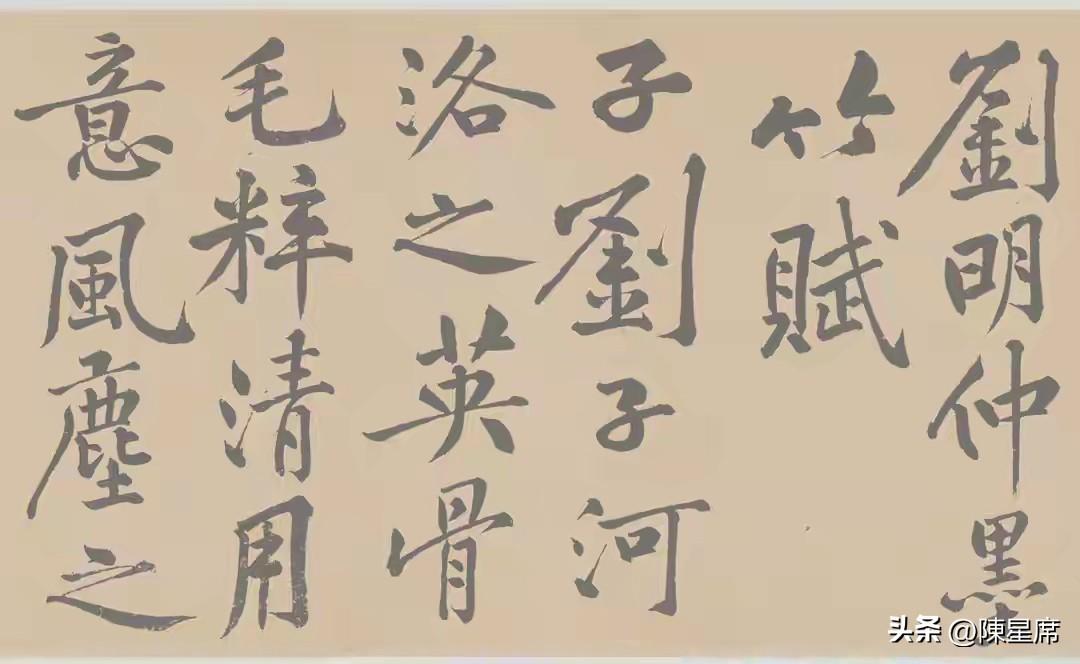 劉明仲墨
竹賦
子劉子河
洛之英骨
毛粹清用
意風塵之
头条 @陳星席